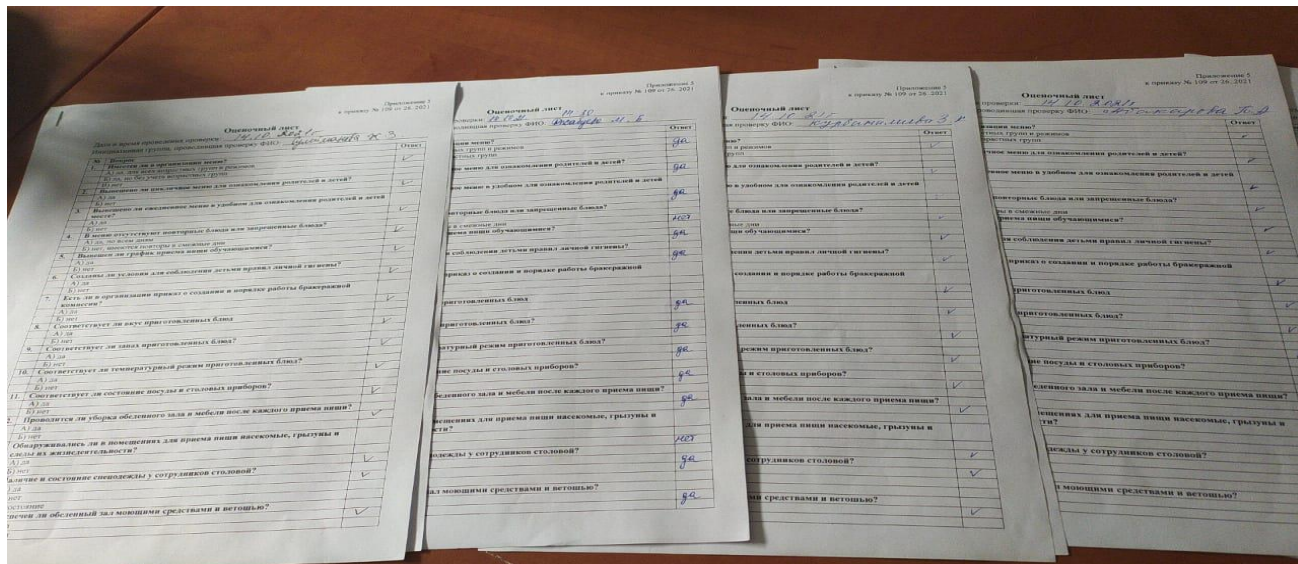 Приложение 5
к приказу № 109 от 26. 2021
Оценочный лист
Дата и время проведения проверки: 14.10.2021г
Инициативная группа, проводившая проверку ФИО:
№ Вопрос Ответ
1. Имеется ли в организации меню?
А) да, для всех возрастных групп и режимов
Б) да, но без учета возрастных групп
В) нет
2. Вывешено ли цикличное меню для ознакомления родителей и детей?
А) да
Б) нет
3. Вывешено ли ежедневное меню в удобном для ознакомления родителей и детей
месте?
А) да
Б) нет
4. В меню отсутствуют повторные блюда или запрещенные блюда?
А) да, по всем дням
Б) нет, имеются повторы в смежные дни
5. Вывешен ли график приема пищи обучающимися?
А) да
Б) нет
6. Созданы ли условия для соблюдения детьми правил личной гигиены?
А) да
Б) нет
7. Есть ли в организации приказ о создании и порядке работы бракеражной
комиссии?
А) да
Б) нет
8. Соответствует ли вкус приготовленных блюд
А) да
Б) нет
9. Соответствует ли запах приготовленных блюд?
А) да
Б) нет
10. Соответствует ли температурный режим приготовленных блюд?
А) да
Б) нет
11. Соответствует ли состояние посуды и столовых приборов?
А) да
Б) нет
Проводится ли уборка обеденного зала и мебели после каждого приема пищи?
А) да
Б) нет
Обнаруживались ли в помещениях для приема пищи насекомые, грызуны и
следы их жизнедеятельности?
А) да
Б) нет
аличие и состояние спецодежды у сотрудников столовой?
да
нет
остояние
спечен ли обеденный зал моющими средствами и ветошью?
Приложение 5
к приказу № 109 от 26. 2021
Оценочный лист
проверки:
водившая проверку ФИО: М. Б
Ответ
ации меню?
стных групп и режимов
растных групп
да
ное меню для ознакомления родителей и детей?
да
ное меню в удобном для ознакомления родителей и детей
да
вторные блюда или запрещенные блюда?
нет
в смежные дни
иема пищи обучающимися?
да
я соблюдения детьми правил личной гигиены?
да
приказ о создании и порядке работы бракеражной
да
риготовленных блюд
да
приготовленных блюд?
да
атурный режим приготовленных блюд?
да
ние посуды и столовых приборов?
да
беденного зала и мебели после каждого приема пищи?
да
мещениях для приема пищи насекомые, грызуны и
сти?
нет
одежды у сотрудников столовой?
да
ал моющими средствами и ветошью?
да
Приложение 5
к приказу № 109 от 26. 2021
Оценочный лист
проверку ФИО:
Ответ
п и режимов
групп
для ознакомления родителей и детей?
в удобном для ознакомления родителей и детей
блюда или запрещенные блюда?
ные дни
ищи обучающимися?
ения детьми правил личной гигиены?
создании и порядке работы бракеражной
ленных блюд
ленных блюд?
режим приготовленных блюд?
ы и столовых приборов?
зала и мебели после каждого приема пищи?
для приема пищи насекомые, грызуны и
сотрудников столовой?
ми средствами и ветошью?
Приложение 5
к приказу № 109 от 26. 2021
Оценочный лист
проверки: 14.10.2021г
проверку ФИО:
Ответ
зации меню?
растных групп и режимов
озрастных групп
чное меню для ознакомления родителей и детей?
вное меню в удобном для ознакомления родителей и детей
повторные блюда или запрещенные блюда?
ы в смежные дни
риема пищи обучающимися?
я соблюдения детьми правил личной гигиены?
приказ о создании и порядке работы бракеражной
приготовленных блюд
приготовленных блюд?
атурный режим приготовленных блюд?
ие посуды и столовых приборов?
еденного зала и мебели после каждого приема пищи?
мещениях для приема пищи насекомые, грызуны и
ти?
дежды у сотрудников столовой?
л моющими средствами и ветошью?